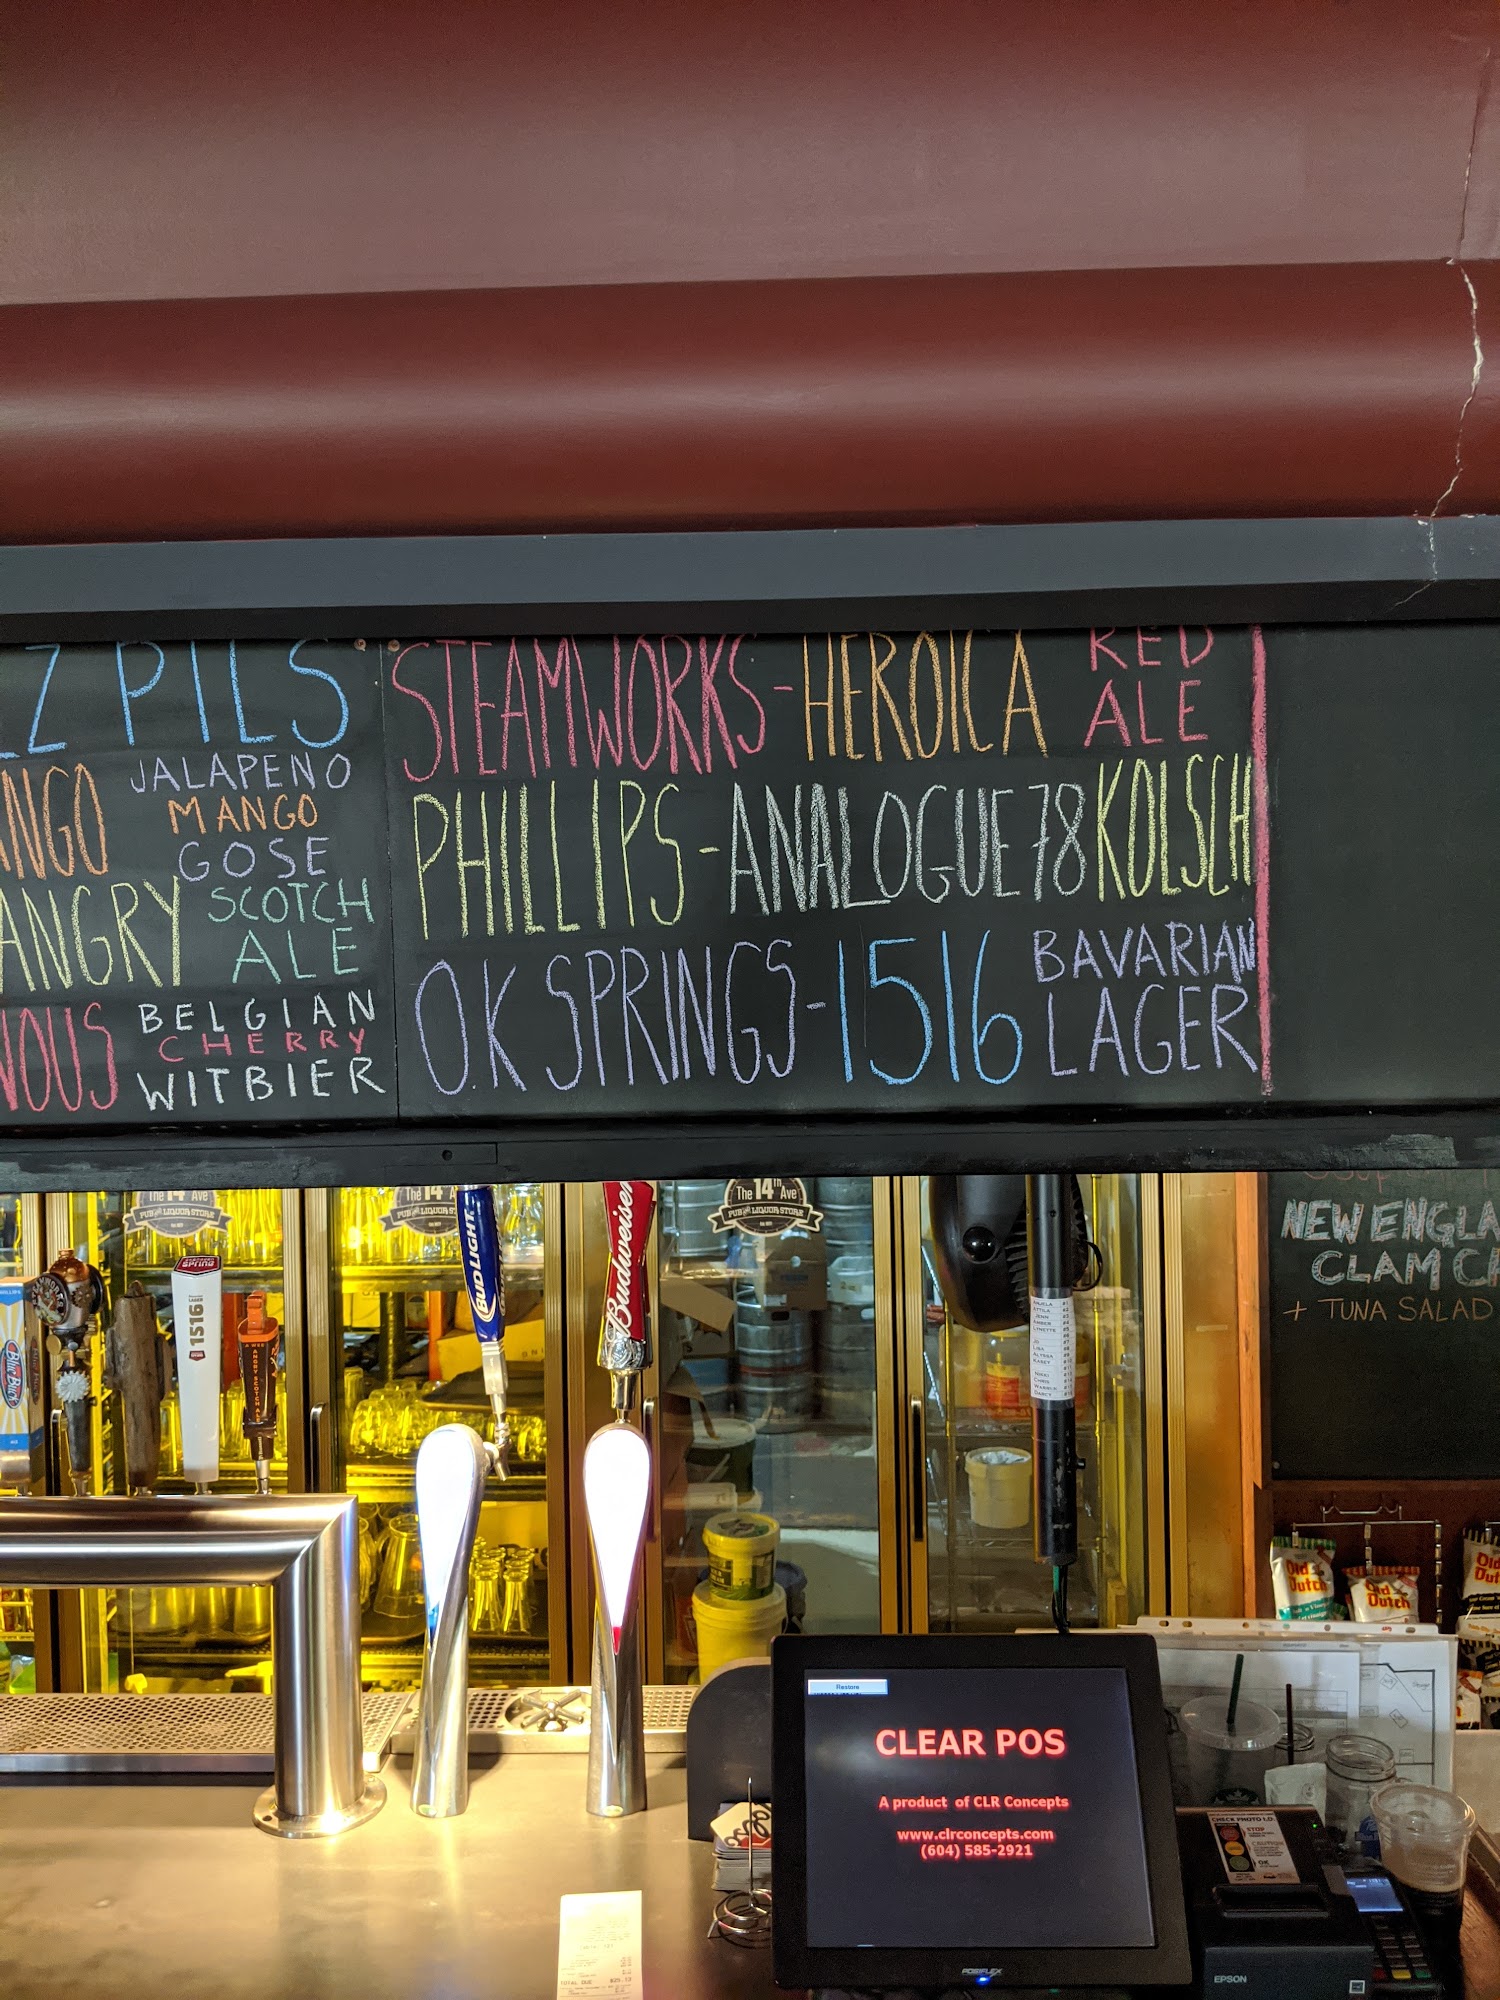 PILS
JALAPENO
MANGO
GOSE
ANGRY SCOTCH
ALE
BELGIAN
CHERRY
WITBIER
STEAMWORKS - HEROICA RED
ALE
PHILLIPS - ANALOGUE 78 KOLSCH
O.K SPRINGS - 1516 BAVARIAN
LAGER
The 14th Ave
PUB and LIQUOR STORE
BUD LIGHT
Budweiser
The 14th Ave
PUB and LIQUOR STORE
SPRING
1516
LAGER
ANGRY SCOTCH ALE
Blue Buck
NEW ENGLA
CLAM CH
+ TUNA SALAD
Old
Dutch
Old
Dutch
Old
Dutch
Restore
CLEAR POS
A product of CLR Concepts
www.clrconcepts.com
(604) 585-2921
POSIFLEX
CHECK PHOTO I.D.
STOP
CAUTION
OK
EPSON
TOTAL DUE $25.12